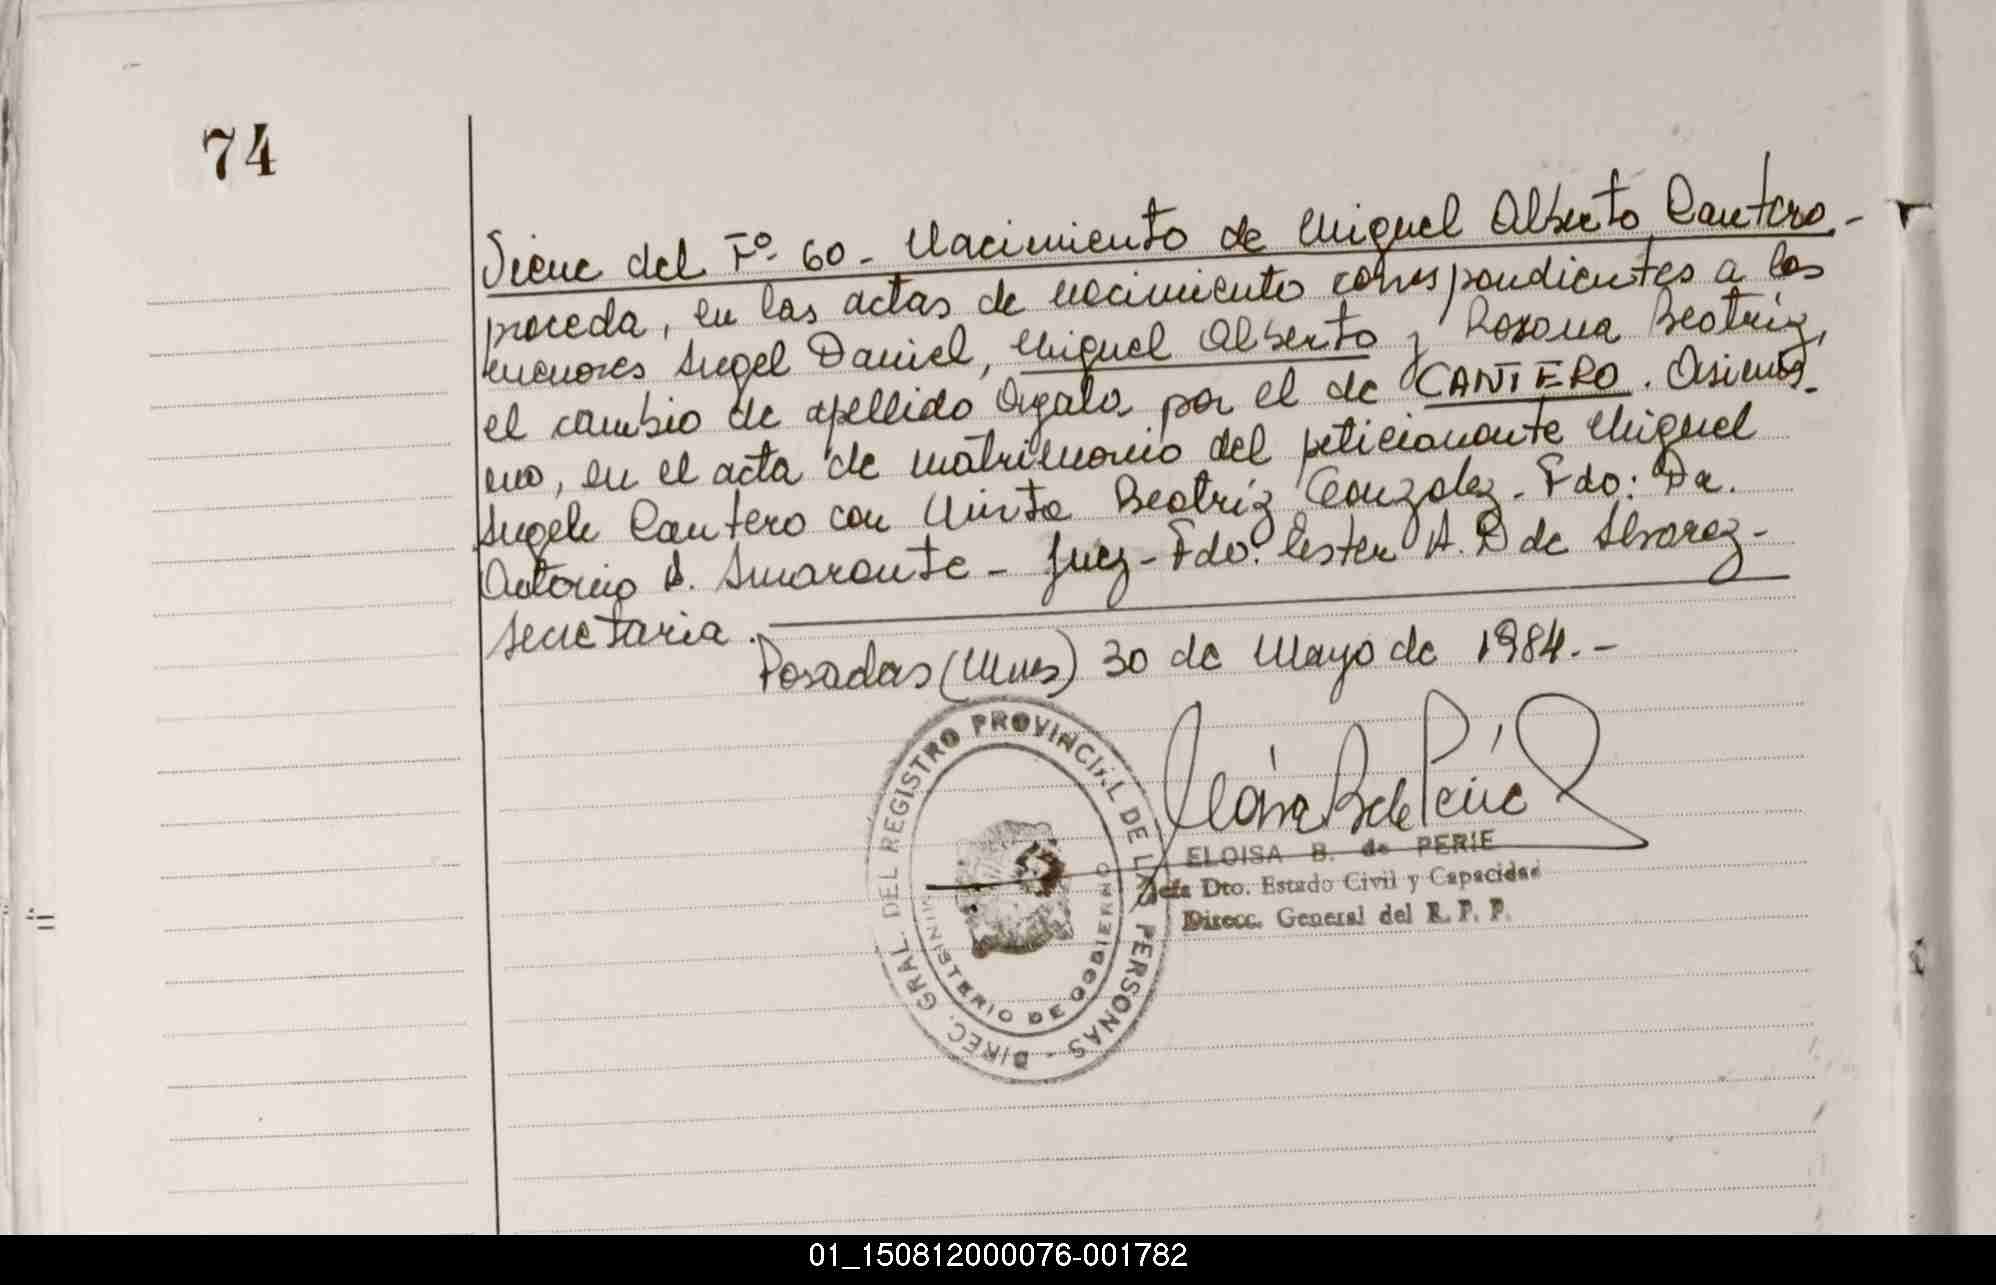 74
Viene del Fº 60 - Nacimiento de Miguel Alberto Cantero.-
proceda, en las actas de nacimiento correspondientes a los
menores Angel Daniel, Miguel Alberto y Roxana Beatriz,
el cambio de apellido por el de CANTERO. Asimis-
mo, en el acta de matrimonio del peticionante Miguel
Angel Cantero con Mirta Beatriz Gonzalez - Fdo: Dr.
Antonio A. Amarante - Juez - Fdo: Ester A. R de Alvarez -
Secretaria.
Posadas (Mnes) 30 de Mayo de 1984.-
DIREC. GRAL. DEL REGISTRO PROVINCIAL DE LAS PERSONAS -
MINISTERIO DE GOBIERNO
ELOISA B. de PERIE
Jefa Dto. Estado Civil y Capacidad
Direcc. General del R. P. P.
01_150812000076-001782